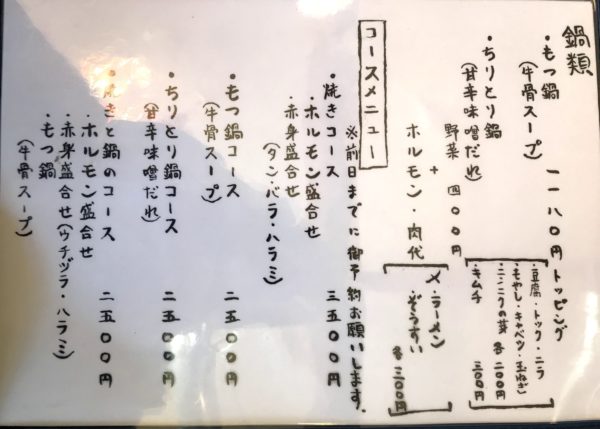 鍋類
・もつ鍋 一一八〇円
(牛骨スープ)
・ちりとり鍋
(甘辛味噌だれ)
野菜 四〇〇円
+
ホルモン・肉代
トッピング
・豆腐・トック・ニラ
・もやし・キャベツ・玉ねぎ
・ニンニクの芽 各二〇〇円
・キムチ 三〇〇円
〆・ラーメン
・ぞうすい
各三〇〇円
コースメニュー
※前日までに御予約お願いします。
・焼きコース 三五〇〇円
・ホルモン盛合せ
・赤身盛合せ
(タン・バラ・ハラミ)
・もつ鍋コース 二五〇〇円
(牛骨スープ)
・ちりとり鍋コース 二五〇〇円
(甘辛味噌だれ)
・焼きと鍋のコース 二五〇〇円
・ホルモン盛合せ
・赤身盛合せ(ウチヅラ・ハラミ)
・もつ鍋
(牛骨スープ)